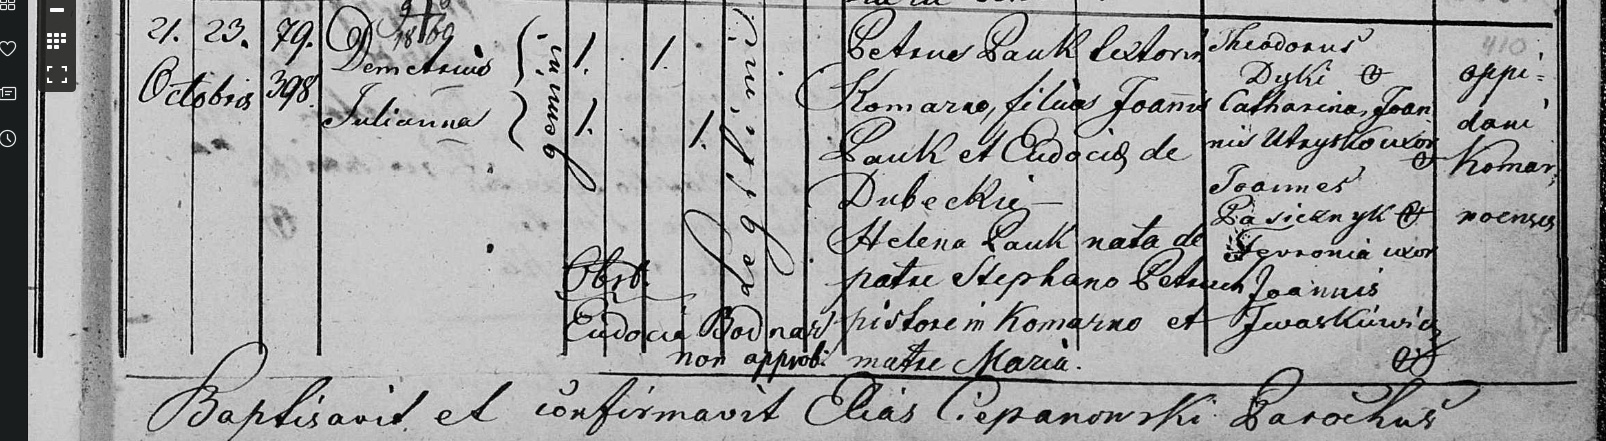 21. 23. 79. Demetrius
Octobris 398. Julianna
gemini
1. 1.
1. 1.
defgit: imi
Obst.
Eudocia Bodnar
non approb:
Petrus Pauk textor in
Komarno, filius Joannis
Pauk et Eudociæ de
Dubeckie
Helena Pauk nata de
patre Stephano Petruch
pistore in Komarno et
matre Maria.
Theodorus
Dyki
Catharina, Joan
nis Utrysko uxor
Joannes
Pasicznyk
Fevronia uxor
Joannis
Iwaskiewicz
410
oppi=
dani
Komar:
noenses
Baptisavit et confirmavit Elias Ciepanowski Parochus